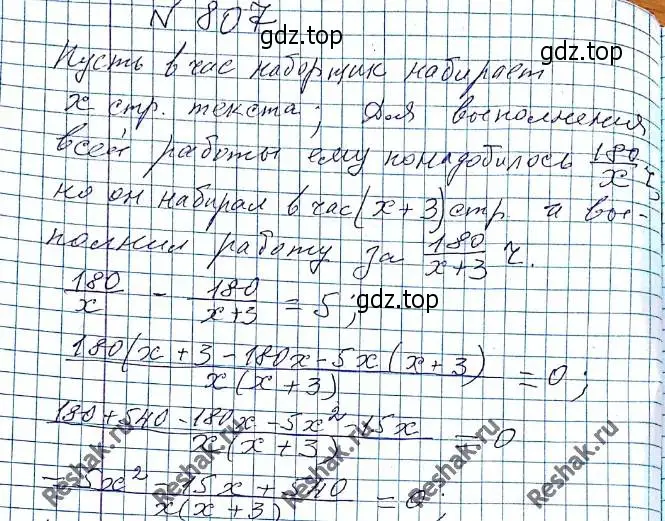 gdz.top
N 807
gdz.top
Пусть в час наборщик набирает
x стр. текста; Для выполнения
всей работы ему понадобилось 180/x ч,
но он набирал в час (x+3) стр. и вы-
полнил работу за 180/(x+3) ч.
180/x - 180/(x+3) = 5;
gdz.top
180(x+3-180x-5x(x+3)/x(x+3) = 0;
180+540-180x-5x²-15x/x(x+3) = 0
-5x²-15x+540/x(x+3) = 0;
Reshak.ru
Reshak.ru
Reshak.ru
Reshak.ru